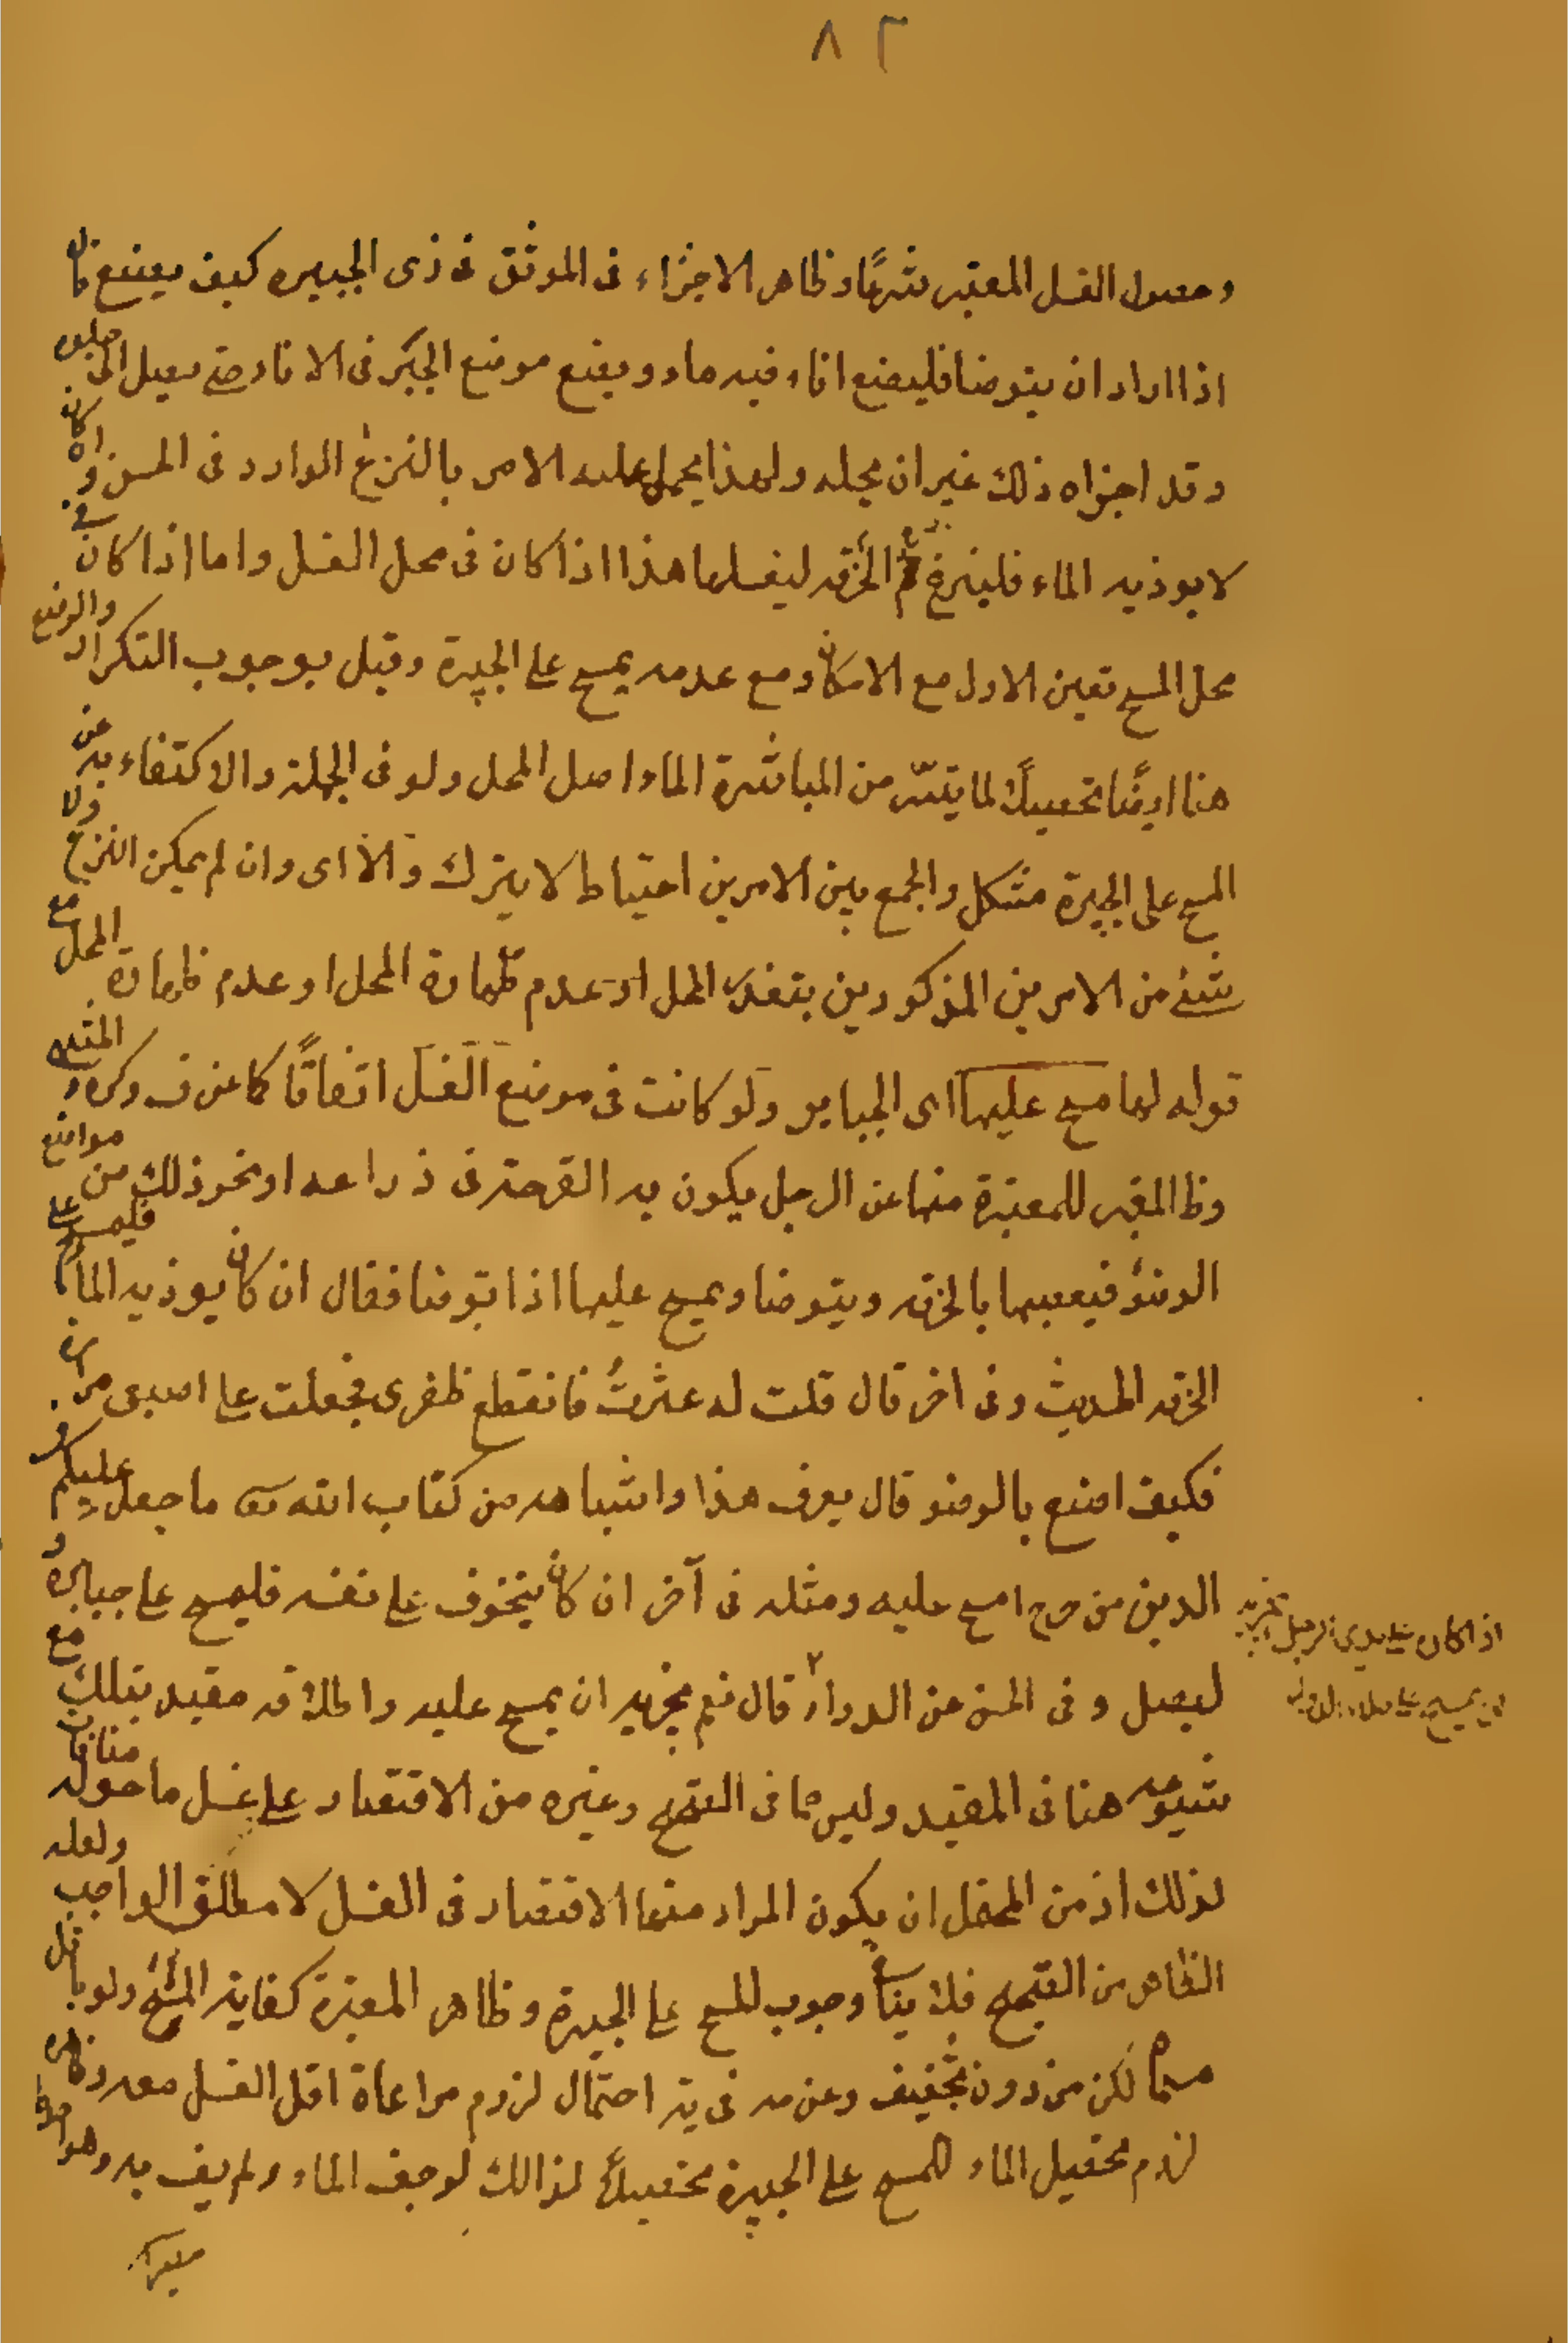 ٨٢
وحصول الغسل المعتبر شرعًا وظاهر الاجزاء فى الموثق فى ذى الجبيره كيف يصنع قال
اذا اراد ان يتوضا فليضع اناء فيه ماء ويضع موضع الجبر فى الاناء حتى يصل الى جلده
وقد اجزاه ذلك غير ان يحله ولهذا يحمل عليه الامر بالنزع الوارد فى الحسن وان كان
لا يوذيه الماء فلينزع الخرقه ليغسلها هذا اذا كان فى محل الغسل واما اذا كان فى
محل المسح تعين الاول مع الامكان ومع عدمه يمسح على الجبيرة وقيل بوجوب التكرار والوضع
هنا ايضًا تحصيلًا لما يتيسّر من المباشرة الماء اصل المحل ولو فى الجملة والاكتفاء به عن
المسح على الجبيرة مشكل والجمع بين الامرين احتياط لا يترك والا اى وان لم يمكن النزع ولا
شئ من الامرين المذكورين بتعذر الحل او عدم طهارة المحل او عدم طهارة المحل مع
قوله لها مسح عليها اى الجباير ولو كانت فى موضع الغسل اتفاقًا كما عن ف وكره و المنتهى
وظ المعتبر للمعتبرة منها عن الرجل يكون به القرحة فى ذراعه او نحو ذلك من مواضع
الوضؤ فيعصبها بالخرقه ويتوضا ويمسح عليها اذا توضا فقال ان كان يوذيه الماء فليمسح على
الخرقه الحديث وفى اخر قال قلت له عثرت فانقطع ظفرى فجعلت على اصبعى مرارة
فكيف اصنع بالوضو قال يعرف هذا واشباهه من كتاب الله تعه ما جعل عليكم فى
الدين من حرج امسح عليه ومثله فى آخر ان كان يتخوف على نفسه فليمسح على جبايره و
ليصل وفى الحسن عن الدواء قال نعم يجزيه ان يمسح عليه واطلاقه مقيد بتلك مع
اذا كان على يدى الرجل يجزيه
ان يمسح على طلاء الدواء
شيوعه هنا فى المقيد وليس ما فى الصحيح وغيره من الاقتصار على غسل ما حوله منافيا
لذلك اذ من المحتمل ان يكون المراد منها الاقتصار فى الغسل لا مطلق الواجب ولعله
الظاهر من الصحيح فلا ينافى وجوب المسح على الجبيرة وظاهر المعتبرة كفاية المسح ولو باقل
مسماه لكن من دون تجفيف وعن مه فى ية احتمال لزوم مراعاة اقل الغسل معه وظاهره
لزوم تحصيل الماء للمسح على الجبيرة تحصيلًا لذالك لو جف الماء ولم يف به وهو احوط